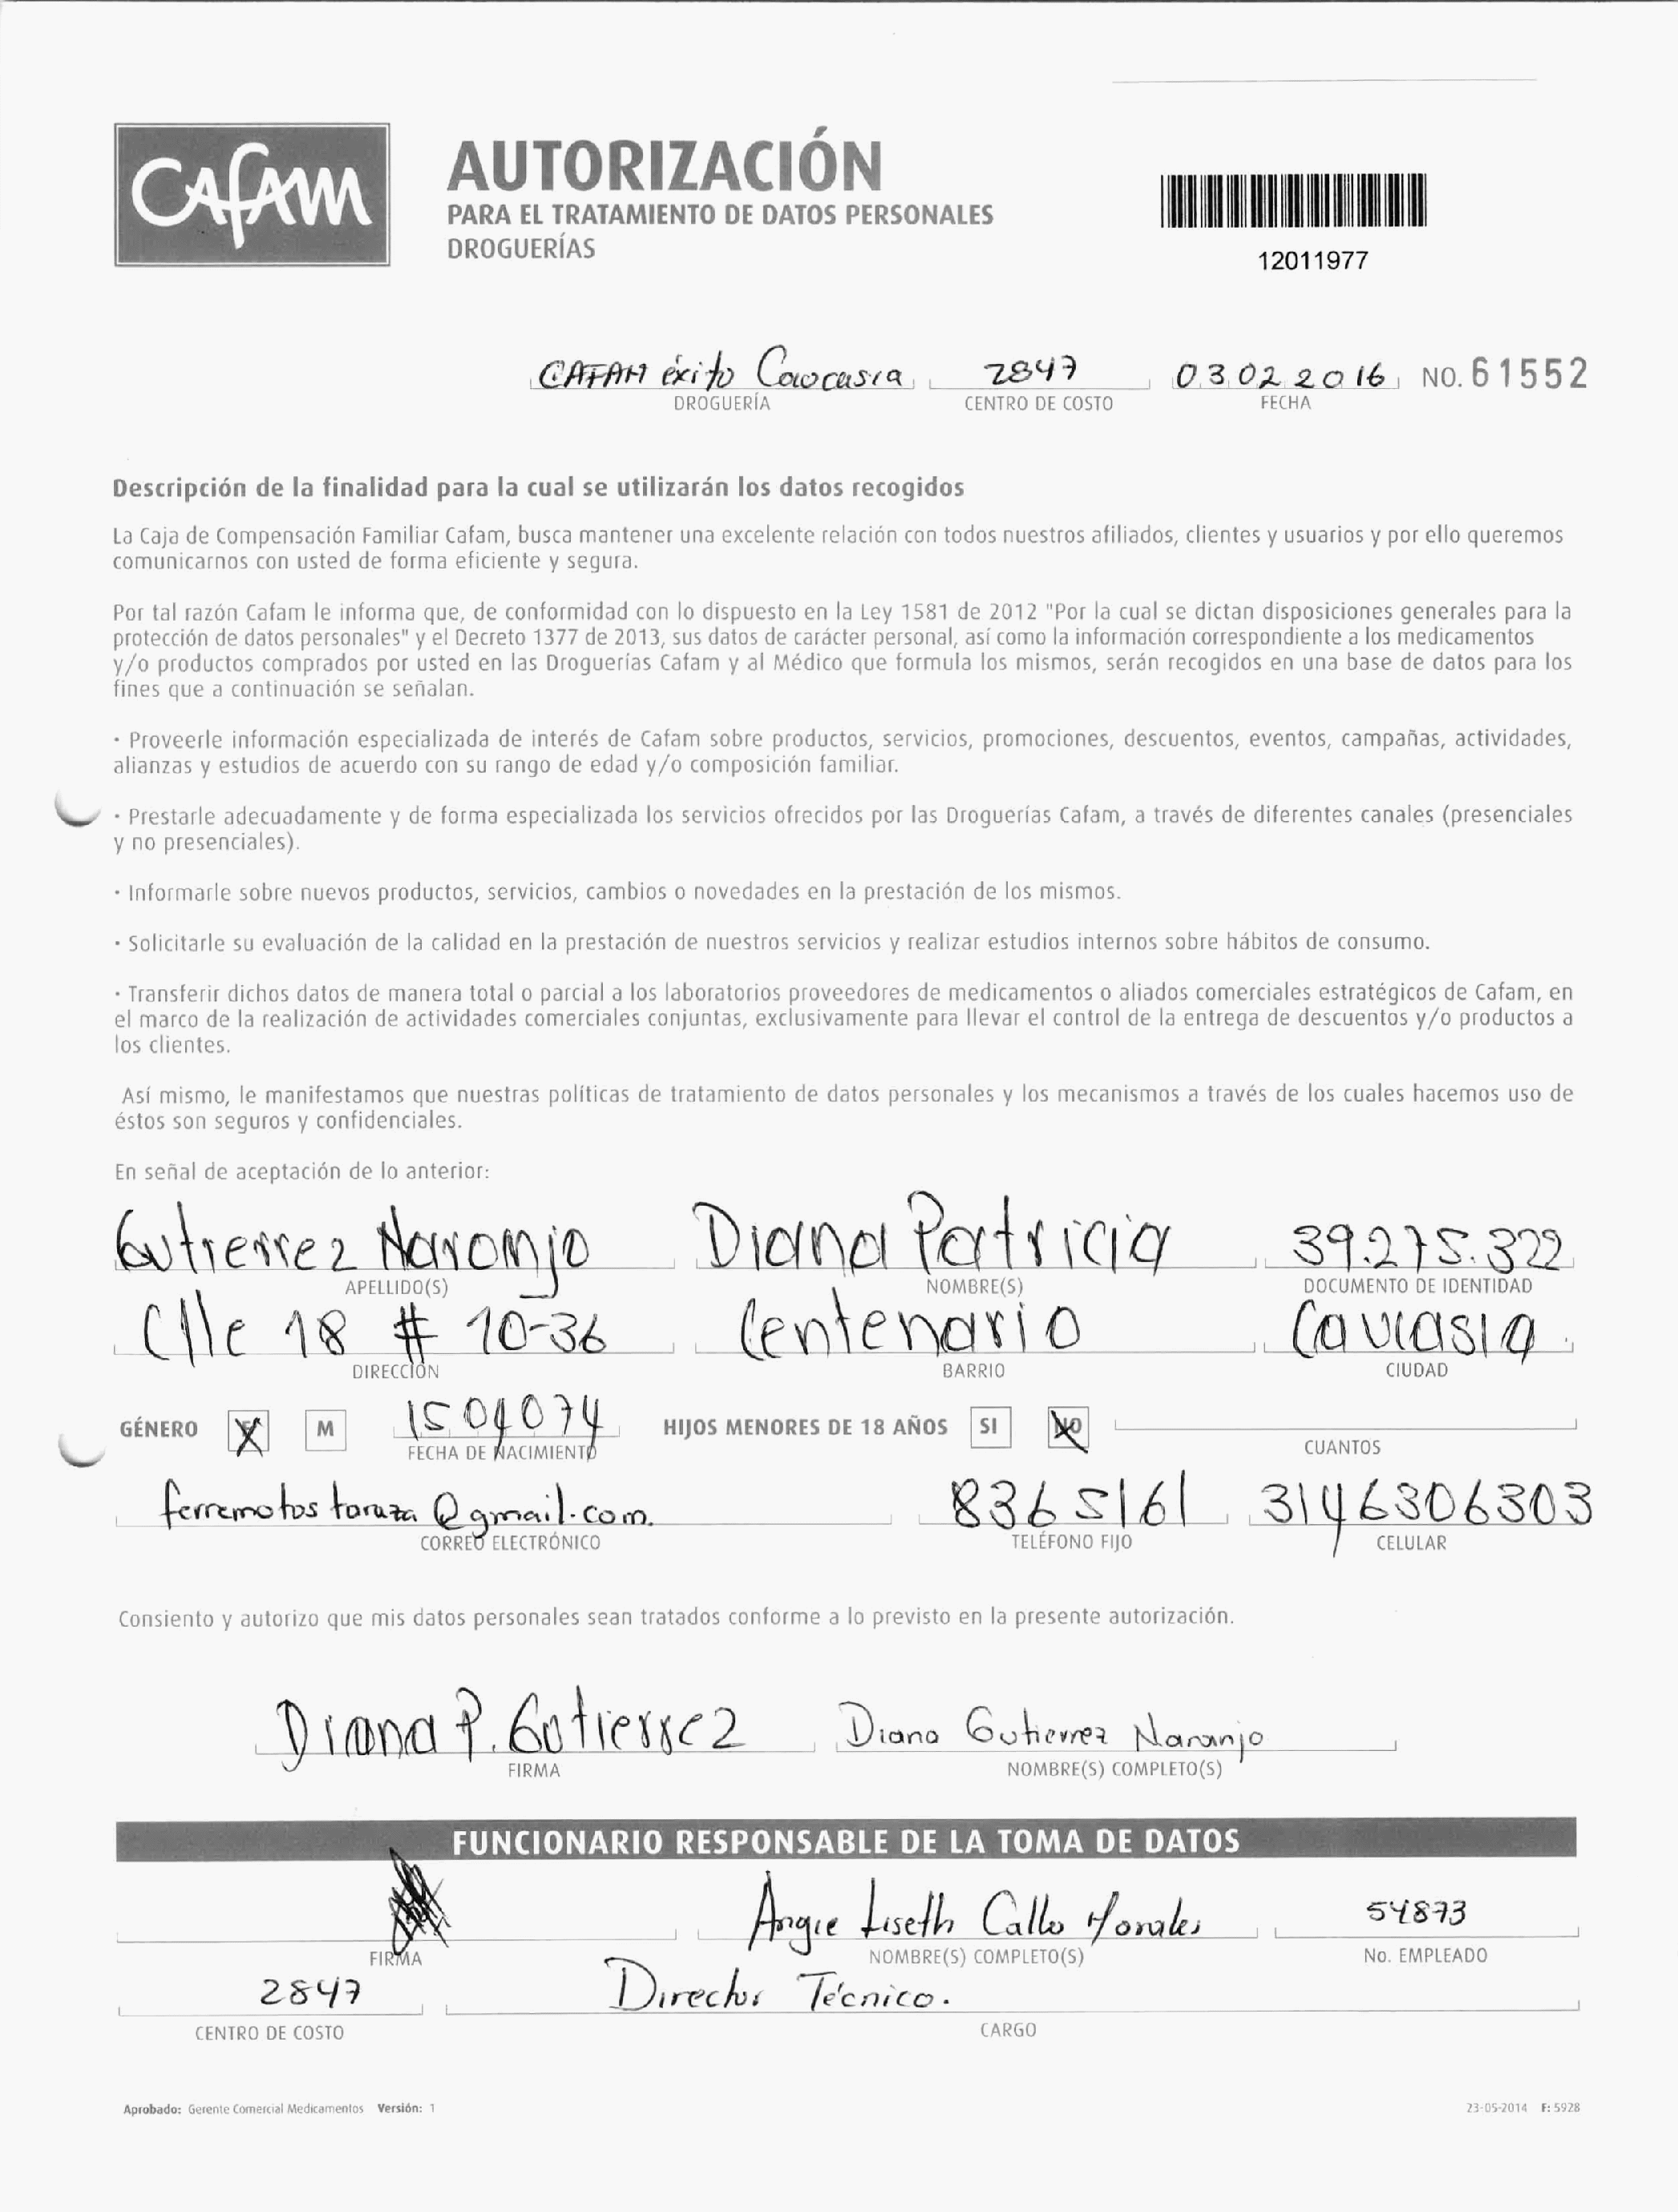 CAFAM
AUTORIZACIÓN
PARA EL TRATAMIENTO DE DATOS PERSONALES
DROGUERÍAS
12011977
CAFAM éxito Caucasia 2847 03 02 2016 NO. 61552
DROGUERÍA CENTRO DE COSTO FECHA
Descripción de la finalidad para la cual se utilizarán los datos recogidos
La Caja de Compensación Familiar Cafam, busca mantener una excelente relación con todos nuestros afiliados, clientes y usuarios y por ello queremos
comunicarnos con usted de forma eficiente y segura.
Por tal razón Cafam le informa que, de conformidad con lo dispuesto en la Ley 1581 de 2012 "Por la cual se dictan disposiciones generales para la
protección de datos personales" y el Decreto 1377 de 2013, sus datos de carácter personal, así como la información correspondiente a los medicamentos
y/o productos comprados por usted en las Droguerías Cafam y al Médico que formula los mismos, serán recogidos en una base de datos para los
fines que a continuación se señalan.
· Proveerle información especializada de interés de Cafam sobre productos, servicios, promociones, descuentos, eventos, campañas, actividades,
alianzas y estudios de acuerdo con su rango de edad y/o composición familiar.
· Prestarle adecuadamente y de forma especializada los servicios ofrecidos por las Droguerías Cafam, a través de diferentes canales (presenciales
y no presenciales).
· Informarle sobre nuevos productos, servicios, cambios o novedades en la prestación de los mismos.
· Solicitarle su evaluación de la calidad en la prestación de nuestros servicios y realizar estudios internos sobre hábitos de consumo.
· Transferir dichos datos de manera total o parcial a los laboratorios proveedores de medicamentos o aliados comerciales estratégicos de Cafam, en
el marco de la realización de actividades comerciales conjuntas, exclusivamente para llevar el control de la entrega de descuentos y/o productos a
los clientes.
Así mismo, le manifestamos que nuestras políticas de tratamiento de datos personales y los mecanismos a través de los cuales hacemos uso de
éstos son seguros y confidenciales.
En señal de aceptación de lo anterior:
Gutierrez Naranjo Diana Patricia 39.275.322
APELLIDO(S) NOMBRE(S) DOCUMENTO DE IDENTIDAD
Clle 18 # 10-36 Centenario Caucasia
DIRECCIÓN BARRIO CIUDAD
GÉNERO F M 15 04 074 HIJOS MENORES DE 18 AÑOS SI NO
FECHA DE NACIMIENTO CUANTOS
ferremotostaraza@gmail.com. 8365161 3146306303
CORREO ELECTRÓNICO TELÉFONO FIJO CELULAR
Consiento y autorizo que mis datos personales sean tratados conforme a lo previsto en la presente autorización.
Diana P. Gutierrez Diana Gutierrez Naranjo
FIRMA NOMBRE(S) COMPLETO(S)
FUNCIONARIO RESPONSABLE DE LA TOMA DE DATOS
Angie Liseth Calle Morales 54873
FIRMA NOMBRE(S) COMPLETO(S) No. EMPLEADO
2847 Director Técnico.
CENTRO DE COSTO CARGO
Aprobado: Gerente Comercial Medicamentos Versión: 1 23-05-2014 F: 5928